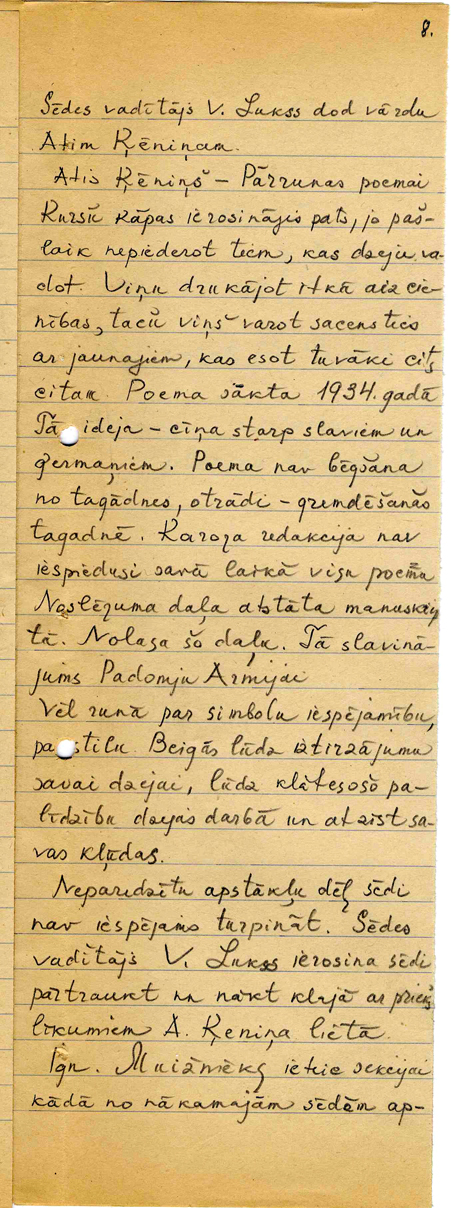 8.
Sēdes vadītājs V. Lukss dod vārdu
Atim Ķēniņam.
Atis Ķēniņš – Pārrunas poemai
Kursīti kāpās ierosinājis pats, jo paš-
laik nepiederot tiem, kas dzeju va-
dot. Viņu drukājot it kā aiz cie-
nības, taču viņš varot sacensties
ar jaunajiem, kas esot tuvāki cits
citam. Poema sākta 1934. gadā
Tā ideja – cīņa starp slaviem un
ģermaņiem. Poema nav bēgšana
no tagadnes, otrādi – gremdēšanās
tagadnē. Karoga redakcija nav
iespiedusi savā laikā visu poemu
Noslēguma daļa atstāta manuskrip
tā. Nolasa šo daļu. Tā slavinā-
jums Padomju Armijai
Vēl runā par simbolu iespējamību,
pa stilu. Beigās lūdz iztirzājumu
savai dzejai, lūdz klātesošo pa-
līdzību dzejas darbā un atzīst sa-
vas kļūdas.
Neparedzētu apstākļu dēļ sēdi
nav iespējams turpināt. Sēdes
vadītājs V. Lukss ierosina sēdi
pārtraukt un nākt klajā ar priekš
likumiem A. Ķeniņa lietā.
Ign. Muižnieks ieteic sekcijai
kādā no nākamajām sēdēm ap-